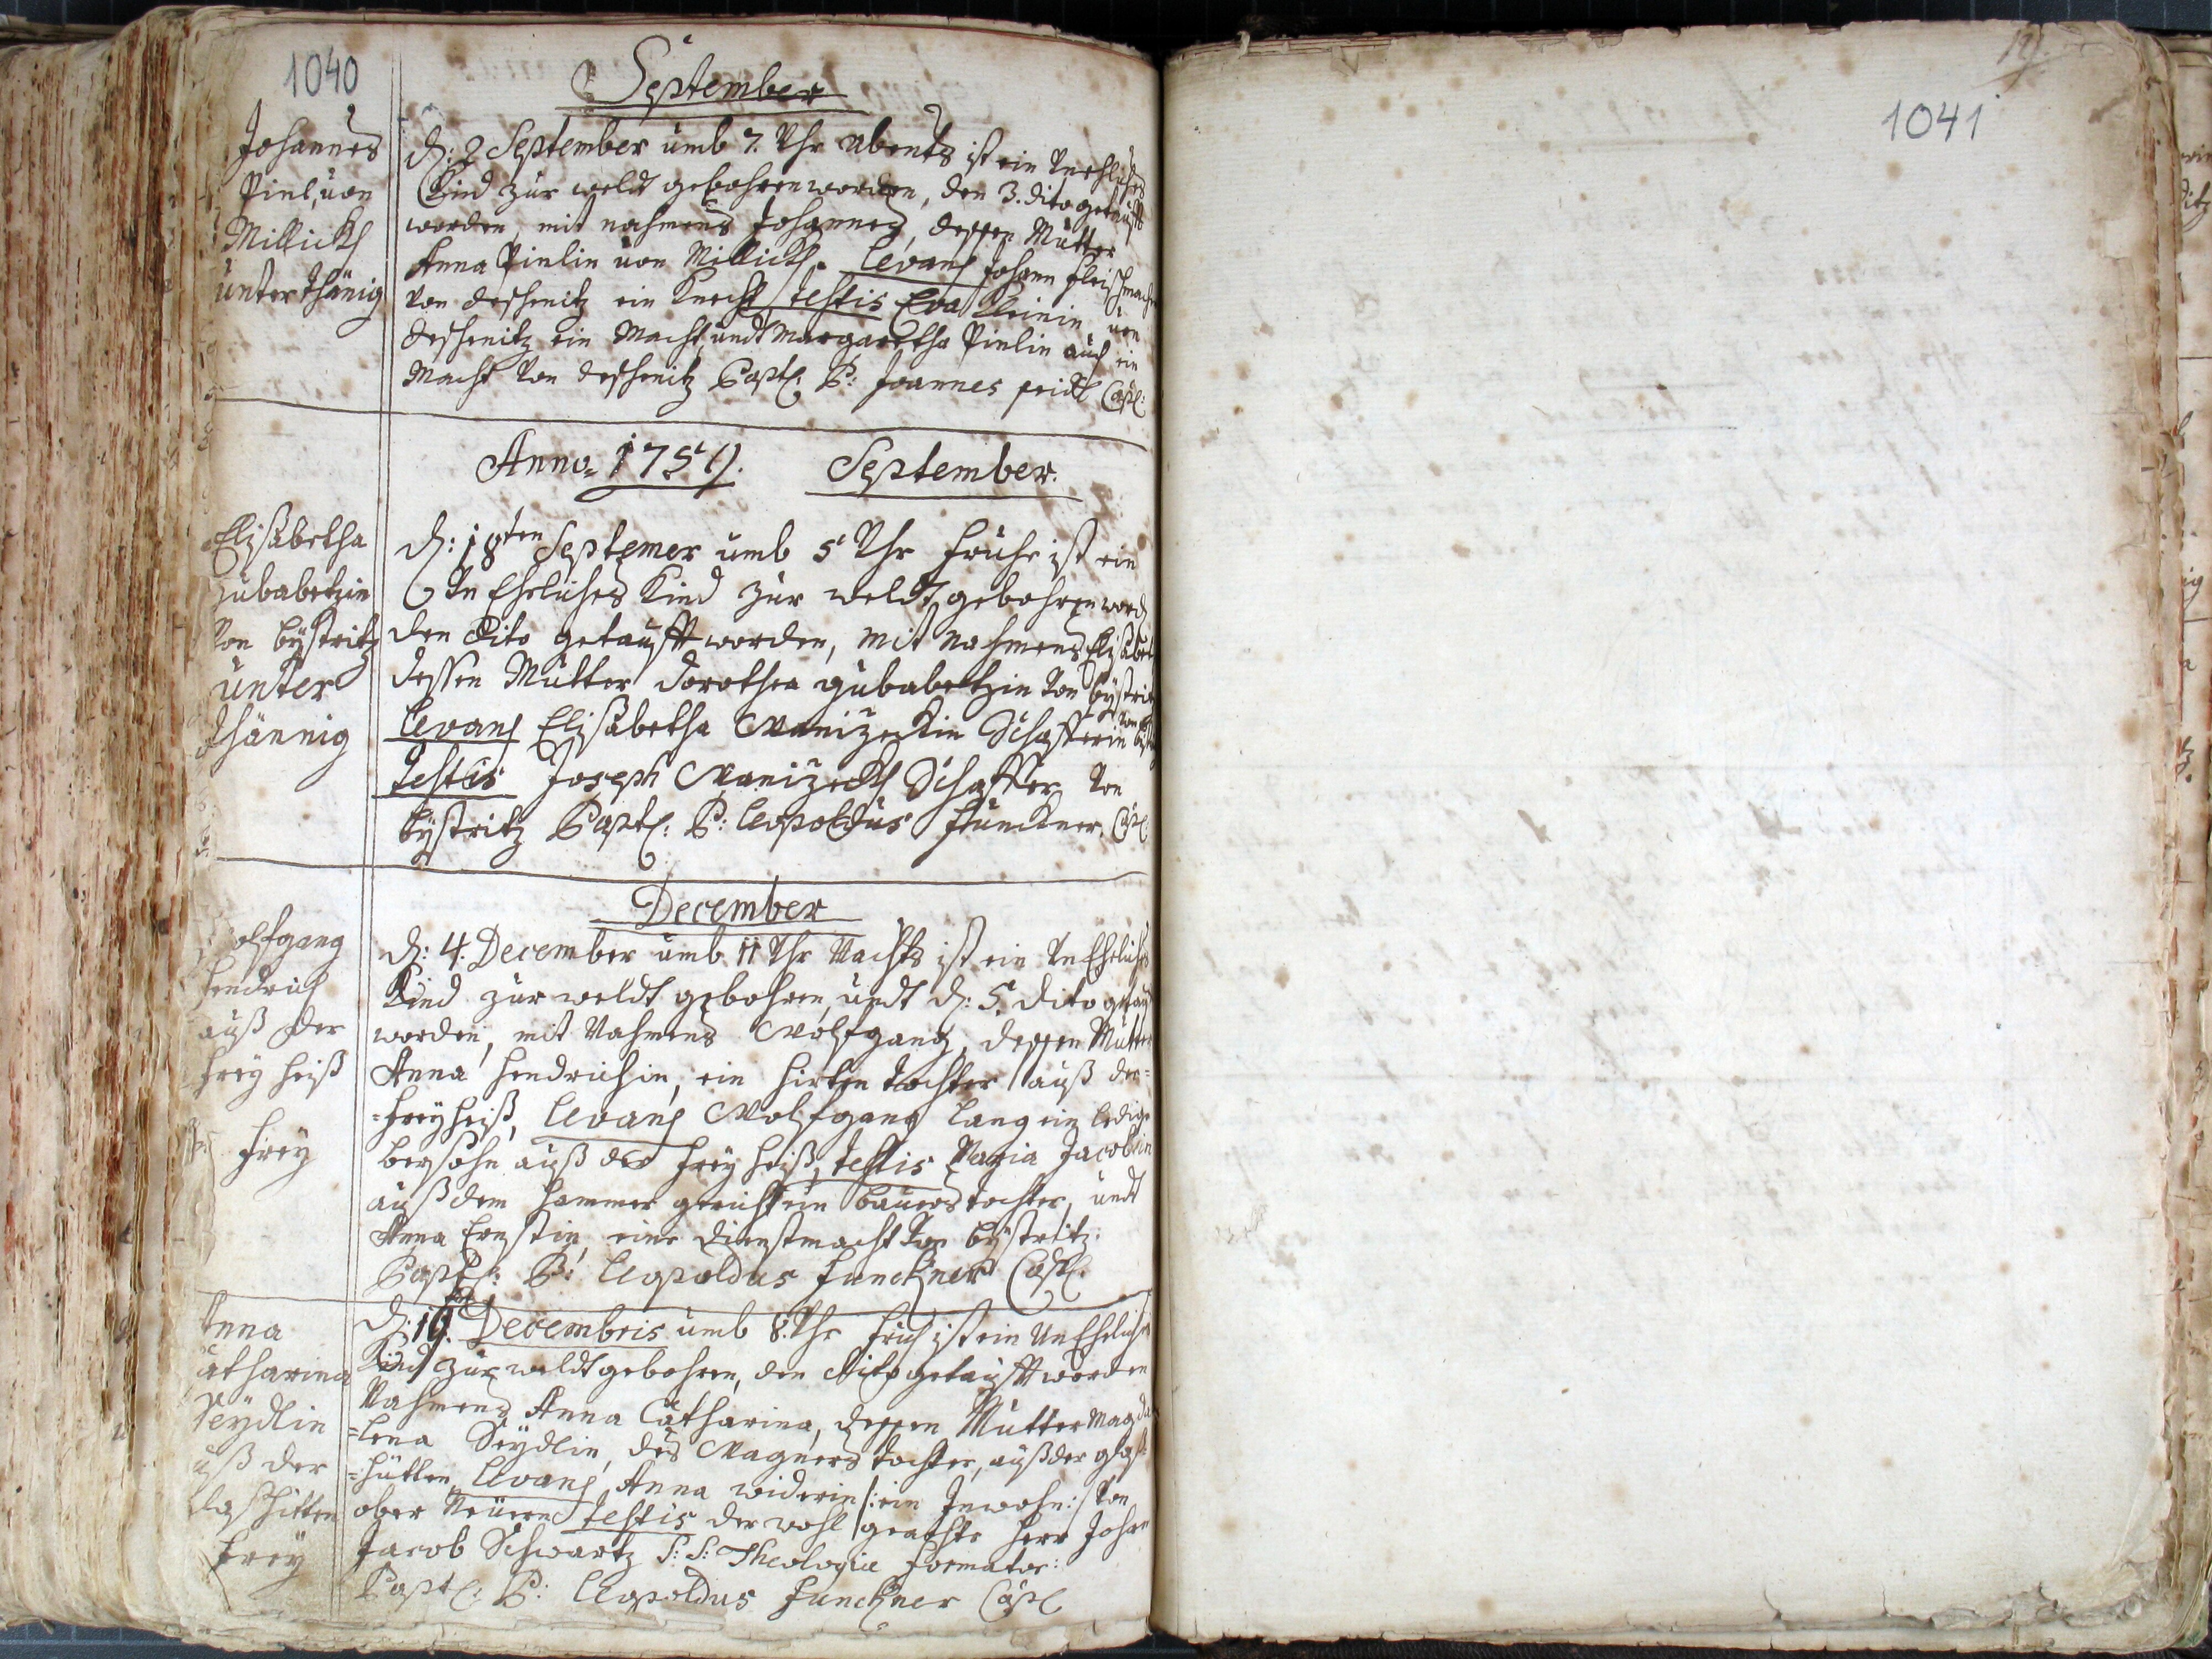 1040
September
Johannes
Pinl, von
Millickh
unterthänig
d: 2 September umb 7. Uhr abents ist ein Unehliches
Kind zur weldt gebohren worden, den 3. dito getaufft
worden, mit nahmens Johannes, dessen Mutter
Anna Pinlin von Millickh. Levans Johann Fleischmacher
von deschenitz ein Knecht, testis Eva Kleinin von
deschenitz ein Macht, undt Margaretha Pinlin auch ein
Macht von deschenitz Bapt: P: Joannes Capl:
Anno 1759. September.
Elisabetha
von Bystritz
unter
thännig
d: 18ten Septemer umb 5 Uhr Fruhe ist ein
UnEhrliches Kind zur weldt gebohren word
den dito getaufft worden, mit nahmens Elisabet
dessen Mutter dorothea gubabetzin von Bystritz
Levans Elisabetha Schafferin von
testis Joseph Schaffer von
Bystritz Bapt: P: Leopoldus Funckner, Capl:
December
olfgang
Hendrich
auß der
Freyheiß
Frey
d: 4. December umb 11 Uhr Nachts ist ein UnEhrliches
Kind zur weldt gebohren, undt d: 5. dito getau
worden, mit Nahmens Wolfgang, dessen Mutter
Anna Hendrichin, ein Hirten tochter auß der=
=Freyheiß, Levans Wolfgang Lang ein ledige
bersohn auß der Freyheiß, testis Maria Jacobin
auß dem Hammer gericht ein bauers tochter, undt
Anna Ernstin, eine dienstmacht von Bystritz:
Bapt: P: Leopoldus Funckner Capl:
Anna
atharina
Seydlin
uß der
lashütten
Frey
d: 19. Decembris umb 8. Uhr Früh ist ein UnEhrliches
Kind zur weldt gebohren, den dito getaufft worden
Nahmens Anna Catharina, dessen Mutter Magda
=lena Seydlin, des Wagners tochter, auß der glas=
=hütten, Levans Anna widerin /:ein Inwohn:/ von
ober Neuern testis der wohl geachte Herr Johan
Jacob Schwartz S: S: Theologiæ Formator:
Bapt: P: Leopoldus Funckner Capl
1041